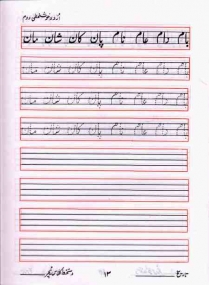 اردو خوشخطی دوم
بام دام عام نام پان کان شان مان
بام دام عام نام پان کان شان مان
بام دام عام نام پان کان شان مان
بام دام عام نام پان کان شان مان
تاریخ ۱۳ دستخط